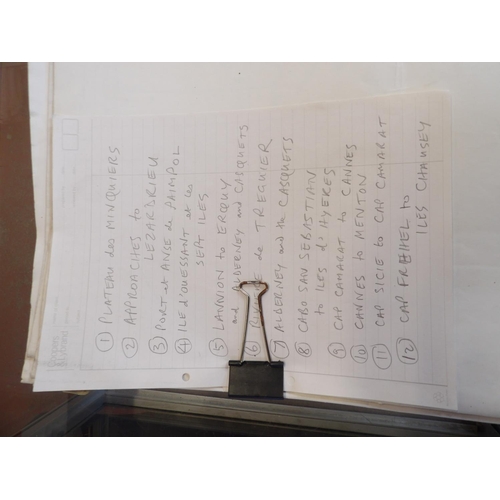 ① PLATEAU des MINQUIERS
② APPROACHES to
LEZARDRIEU
③ PORT et ANSE de PAIMPOL
④ ILE d'OUESSANT et les
SEPT ILES
⑤ LANNION to ERQUY
and ALDERNEY and CASQUETS
⑥ de TREGUIER
⑦ ALDERNEY and the CASQUETS
⑧ CABO SAN SEBASTIAN
to ILES d'HYERES
⑨ CAP CAMARAT to CANNES
⑩ CANNES to MENTON
⑪ CAP SICIE to CAP CAMARAT
⑫ CAP FREHEL to
ILES CHAUSEY